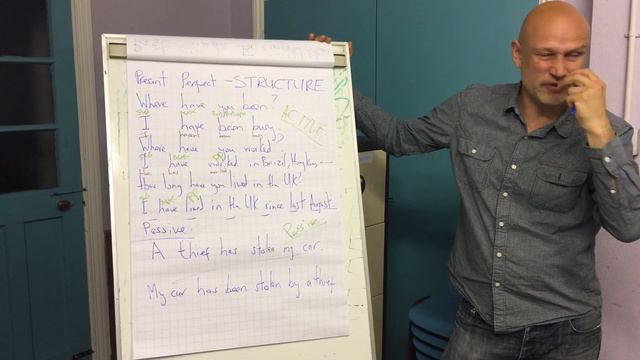 Present Perfect - STRUCTURE
Where have you been?
ACTIVE
I have been busy
Where have you worked?
I have worked in Brazil, Hong Kong
How long have you lived in the UK?
I have lived in the UK since last August
Passive
Passive
A thief has stolen my car.
My car has been stolen by a thief